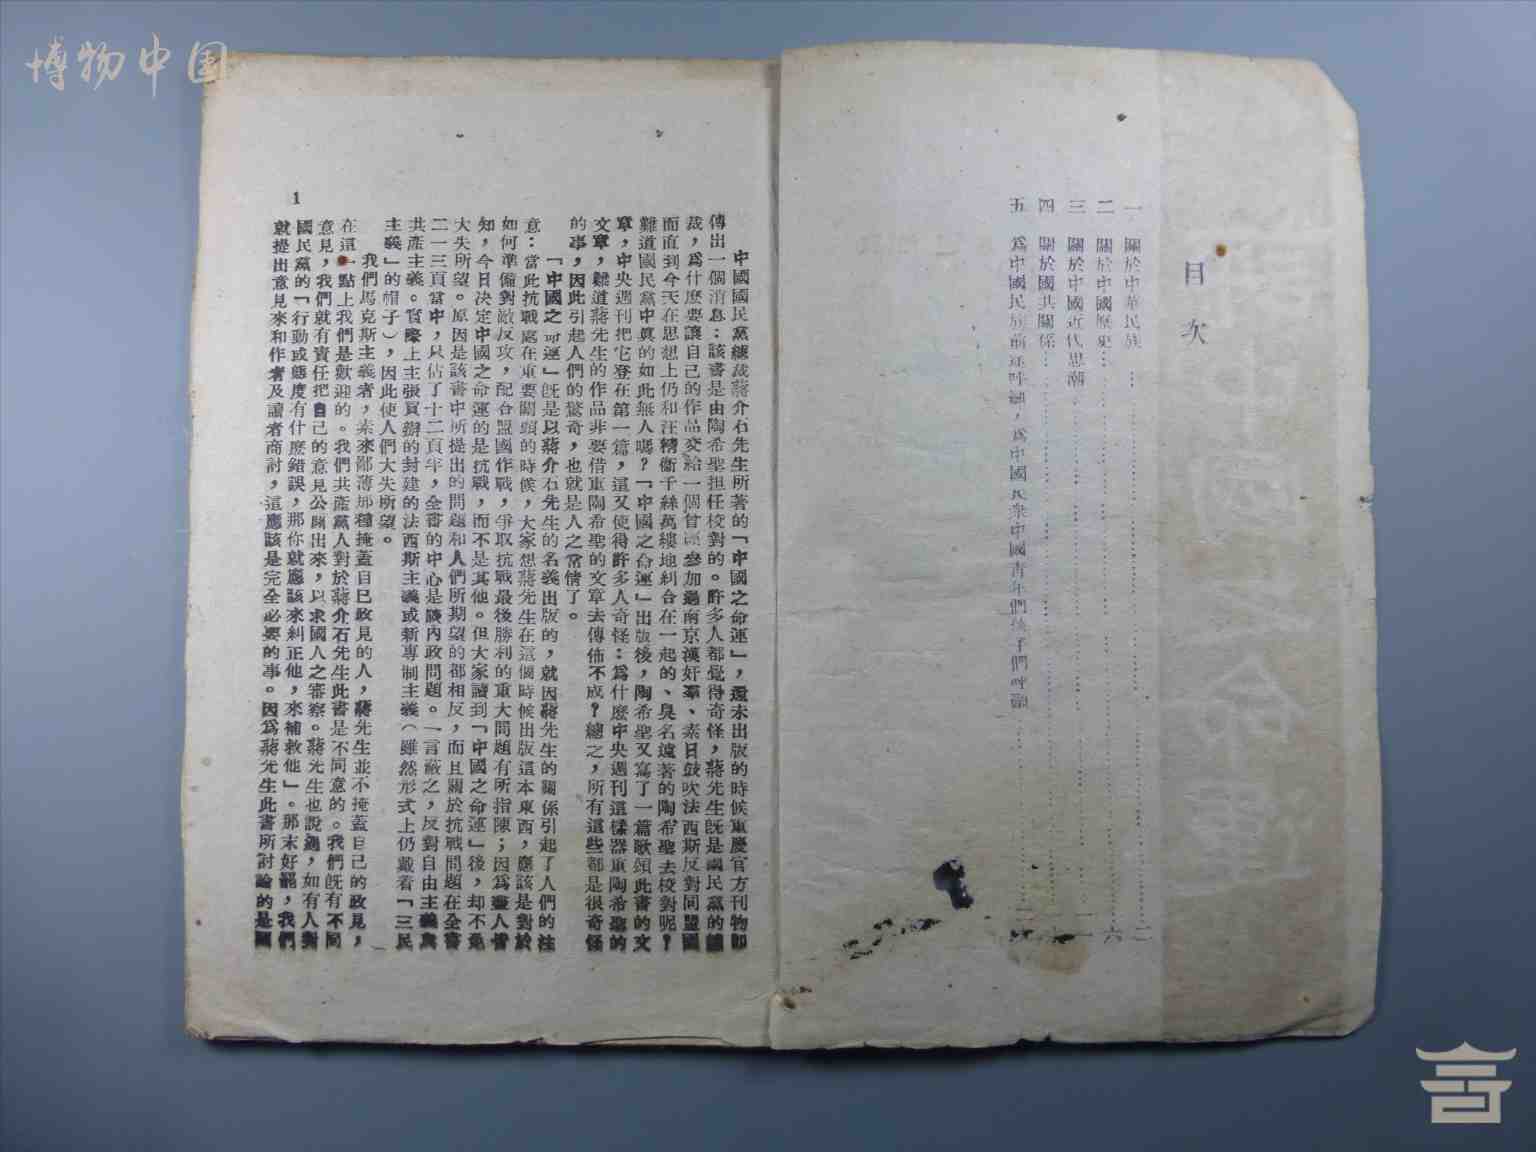 博物中国
目次
一 關於中華民族
二 關於中國歷史
三 關於中國近代思潮
四 關於國共關係
五 為中國民族前途呼籲，為中國民眾中國青年們孩子們呼籲
1
中國國民黨總裁蔣介石先生所著的「中國之命運」，還未出版的時候重慶官方刊物卽
傳出一個消息：該書是由陶希聖担任校對的。許多人都覺得奇怪，蔣先生旣是國民黨的總
裁，爲什麼要讓自己的作品交給一個曾經參加過南京漢奸羣、素日鼓吹法西斯反對同盟國
而直到今天在思想上仍和汪精衞千絲萬縷地糾合在一起的、臭名遠著的陶希聖去校對呢？
難道國民黨中眞的如此無人嗎？「中國之命運」出版後，陶希聖又寫了一篇歌頌此書的文
章，中央週刊把它登在第一篇，這又使得許多人奇怪：爲什麼中央週刊這樣器重陶希聖的
文章，難道蔣先生的作品非要借重陶希聖的文章去傳佈不成？總之，所有這些都是很奇怪
的事，因此引起人們的驚奇，也就是人之常情了。
「中國之命運」旣是以蔣介石先生的名義出版的，就因蔣先生的關係引起了人們的注
意：當此抗戰處在重要關頭的時候，大家想蔣先生在這個時候出版這本東西，應該是對於
如何準備對敵反攻，配合盟國作戰，爭取抗戰最後勝利的重大問題有所指陳；因爲盡人皆
知，今日決定中國之命運的是抗戰，而不是其他。但大家讀到「中國之命運」後，却不免
大失所望。原因是該書中所提出的問題和人們所期望的都相反，而且關於抗戰問題在全書
二一三頁當中，只佔了十二頁半，全書的中心是談內政問題。一言蔽之，反對自由主義與
共產主義。實際上主張買辦的封建的法西斯主義或新專制主義（雖然形式上仍戴着「三民
主義」的帽子），因此使人們大失所望。
我們馬克斯主義者，素來鄙薄那種掩蓋自己政見的人，蔣先生並不掩蓋自己的政見，
在這一點上我們是歡迎的。我們共產黨人對於蔣介石先生此書是不同意的。我們旣有不同
意見，我們就有責任把自己的意見公開出來，以求國人之審察。蔣先生也說過，如有人對
國民黨的「行動或態度有什麼錯誤，那你就應該來糾正他，來補救他」。那末好罷，我們
就提出意見來和作者及讀者商討，這應該是完全必要的事。因爲蔣先生此書所討論的是關